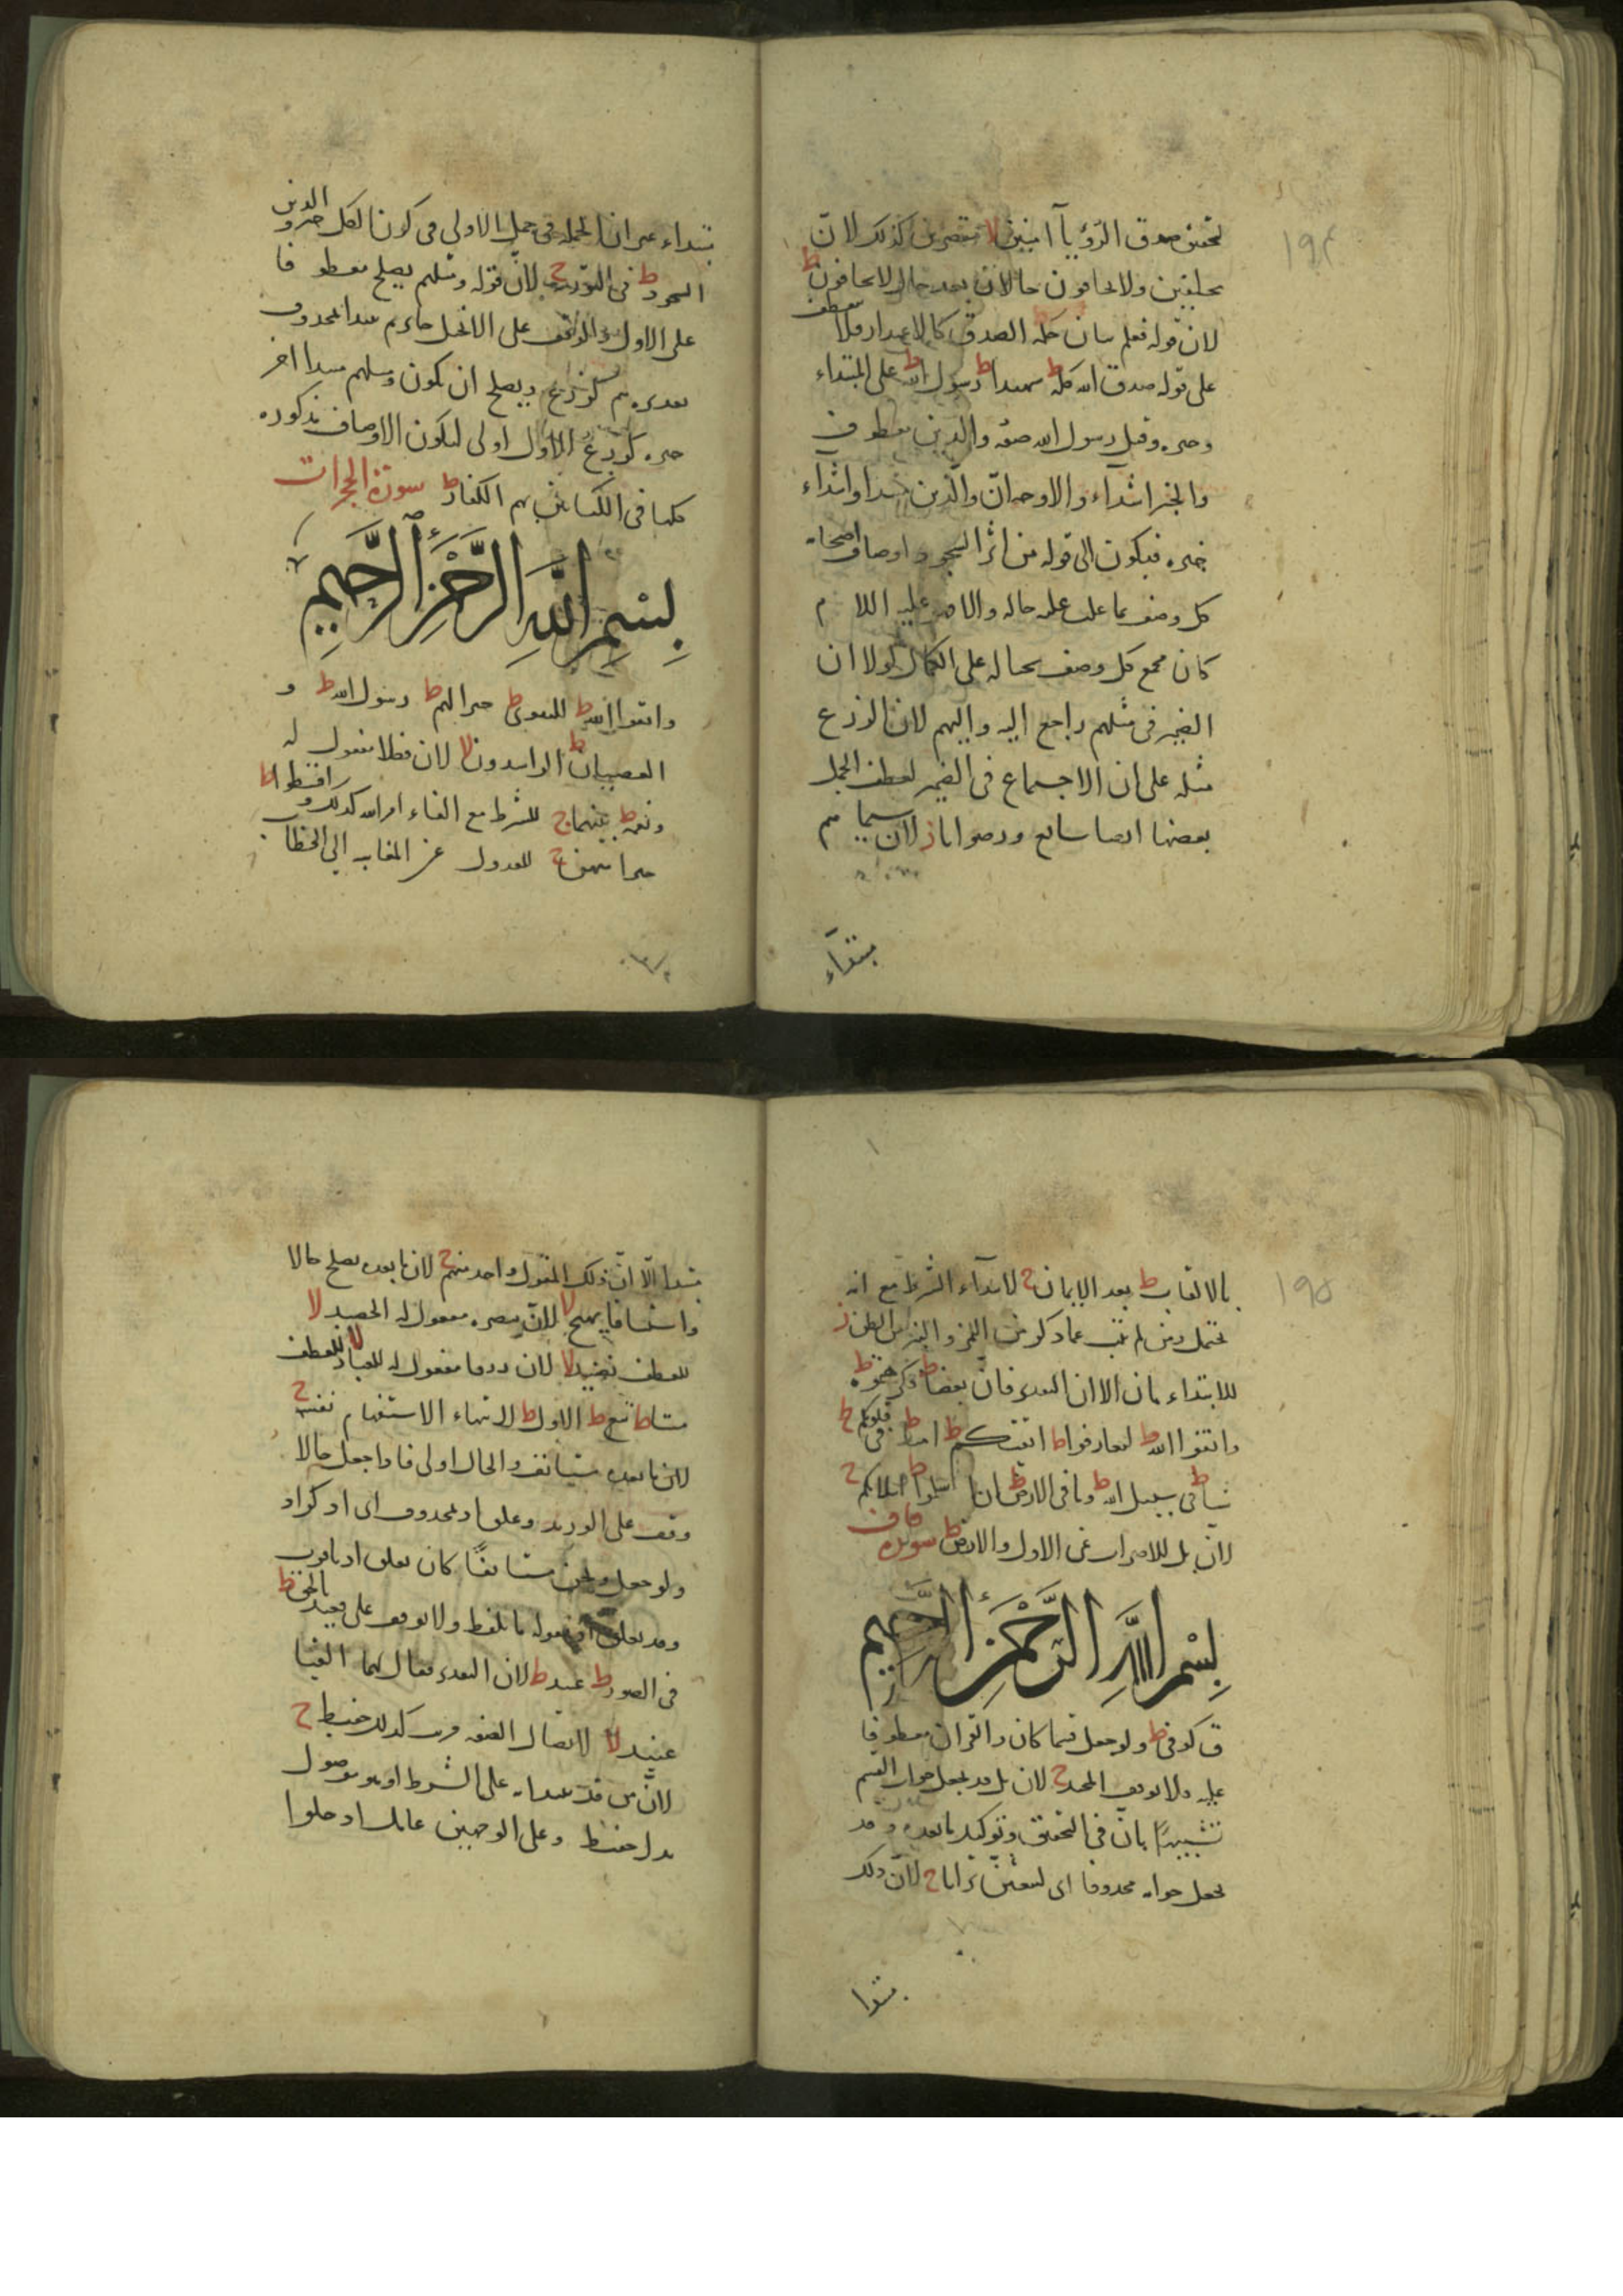 ١٩٤
لتحقيق صدق الرؤيا آمنين لا مقصرين كذلك لان
محلقين ولا تخافون حالان بعد حال لا تخافون ط
لان قوله فعلم بيان حكمة الصدق كالاعداد فلا يعطف
على قوله صدق الله كله ط شهيدا ط رسول الله ط على المبتداء
وخبره وقيل رسول الله صفة والذين معطوف
والخبر اشداء والاوجه ان والذين مبتدا واشداء
خبره فيكون الى قوله من اثر السجود اوصاف اصحابه
كل وصف بما غلب عليه حاله والا هو عليه السلام
كان مجمع كل وصف بحاله على الكمال لولا ان
الضمير في مثلهم راجع اليه واليهم لان الزرع
مثله على ان الاجتماع في الضمير لعطف الجمل
بعضها ايضا سائغ ورضوانا ز لان سيماهم
مبتداء
مبتداء غير ان الجملة في جمل الاولى في كونها لكل خبر والذين
السجود ط في التورية ج لان قوله ومثلهم يصلح معطوفا
على الاول والوقف على الانجيل حائزهم مبتدا محذوف
تقديره هم كزرع ويصلح ان يكون ومثلهم مبتدا اخر
خبره كزرع الاول اولى لتكون الاوصاف مذكورة
كلها في الكتابين بهم الكفار ط سورة الحجرات
بسم الله الرحمن الرحيم
واتقوا الله ط للتقوى ط خيرا لهم ط رسول الله ط و
العصيان ط الراشدون لا لان فضلا مفعول له
ونعمة ط بينهما ج للشرط مع الفاء امر الله كذلك واقسطوا ط
خيرا منهن ج للعدول عن المغايبة الى الخطاب
١٩٥
بالالقاب ط بعد الايمان ج لابتداء الشرط مع انه
يحتمل ومن لم يتب عما ذكر من اللمز والنبز من الظن ز
للابتداء بان الا ان التقدير فان بعضا ط فكرهتموه ط
واتقوا الله ط لتعارفوا ط اتقيكم ط امنا ط في قلوبكم ط
شيأ ط في سبيل الله ط وما في الارض ط ان اسلموا ط اسلامكم ج
لان بل للاضراب عن الاول والارض ط سورة قاف
بسم الله الرحمن الرحيم
ق كوفي ط ولو جعل قسما كان والقران معطوفا
عليه ولا يوقف المجيد ج لان بل قد يجعل جواب القسم
تشبيها بان في التحقيق وتوكيد ما بعده وقد
يجعل جوابه محذوفا اى لتبعثن ترابا ج لان ذلك
مبتدا
مبتدا الا ان ذلك المقول واحد منهم ج لان ما بعده يصلح حالا
واستئنافا بهيج لا لان تبصرة مفعول له الحصيد لا
للعطف نضيد لا لان رزقا مفعول له للعباد لا للعطف
ميتا ط تبع ط الاول ط لانتهاء الاستفهام نفسه ج
لان ما بعده مستانف والحال اولى فاذا جعل حالا
وقف على الوريد وعلق اذ بمحذوف اى اذكر اذ
ولو جعل ونحن مستانفا كان تعلق اذ باقرب
وقد تعلق اذ بقوله ما يلفظ ولا يوقف على قعيد بالحق ط
في الصور ط عتيد ط لان التقدير فقال لهما القيا
عنيد لا لاتصال الصفة مريب كذلك حفيظ ج
لان من قد تعدا به على الشرط او هو موصول
بدل حفيظ وعلى الوجهين عامله ادخلوا